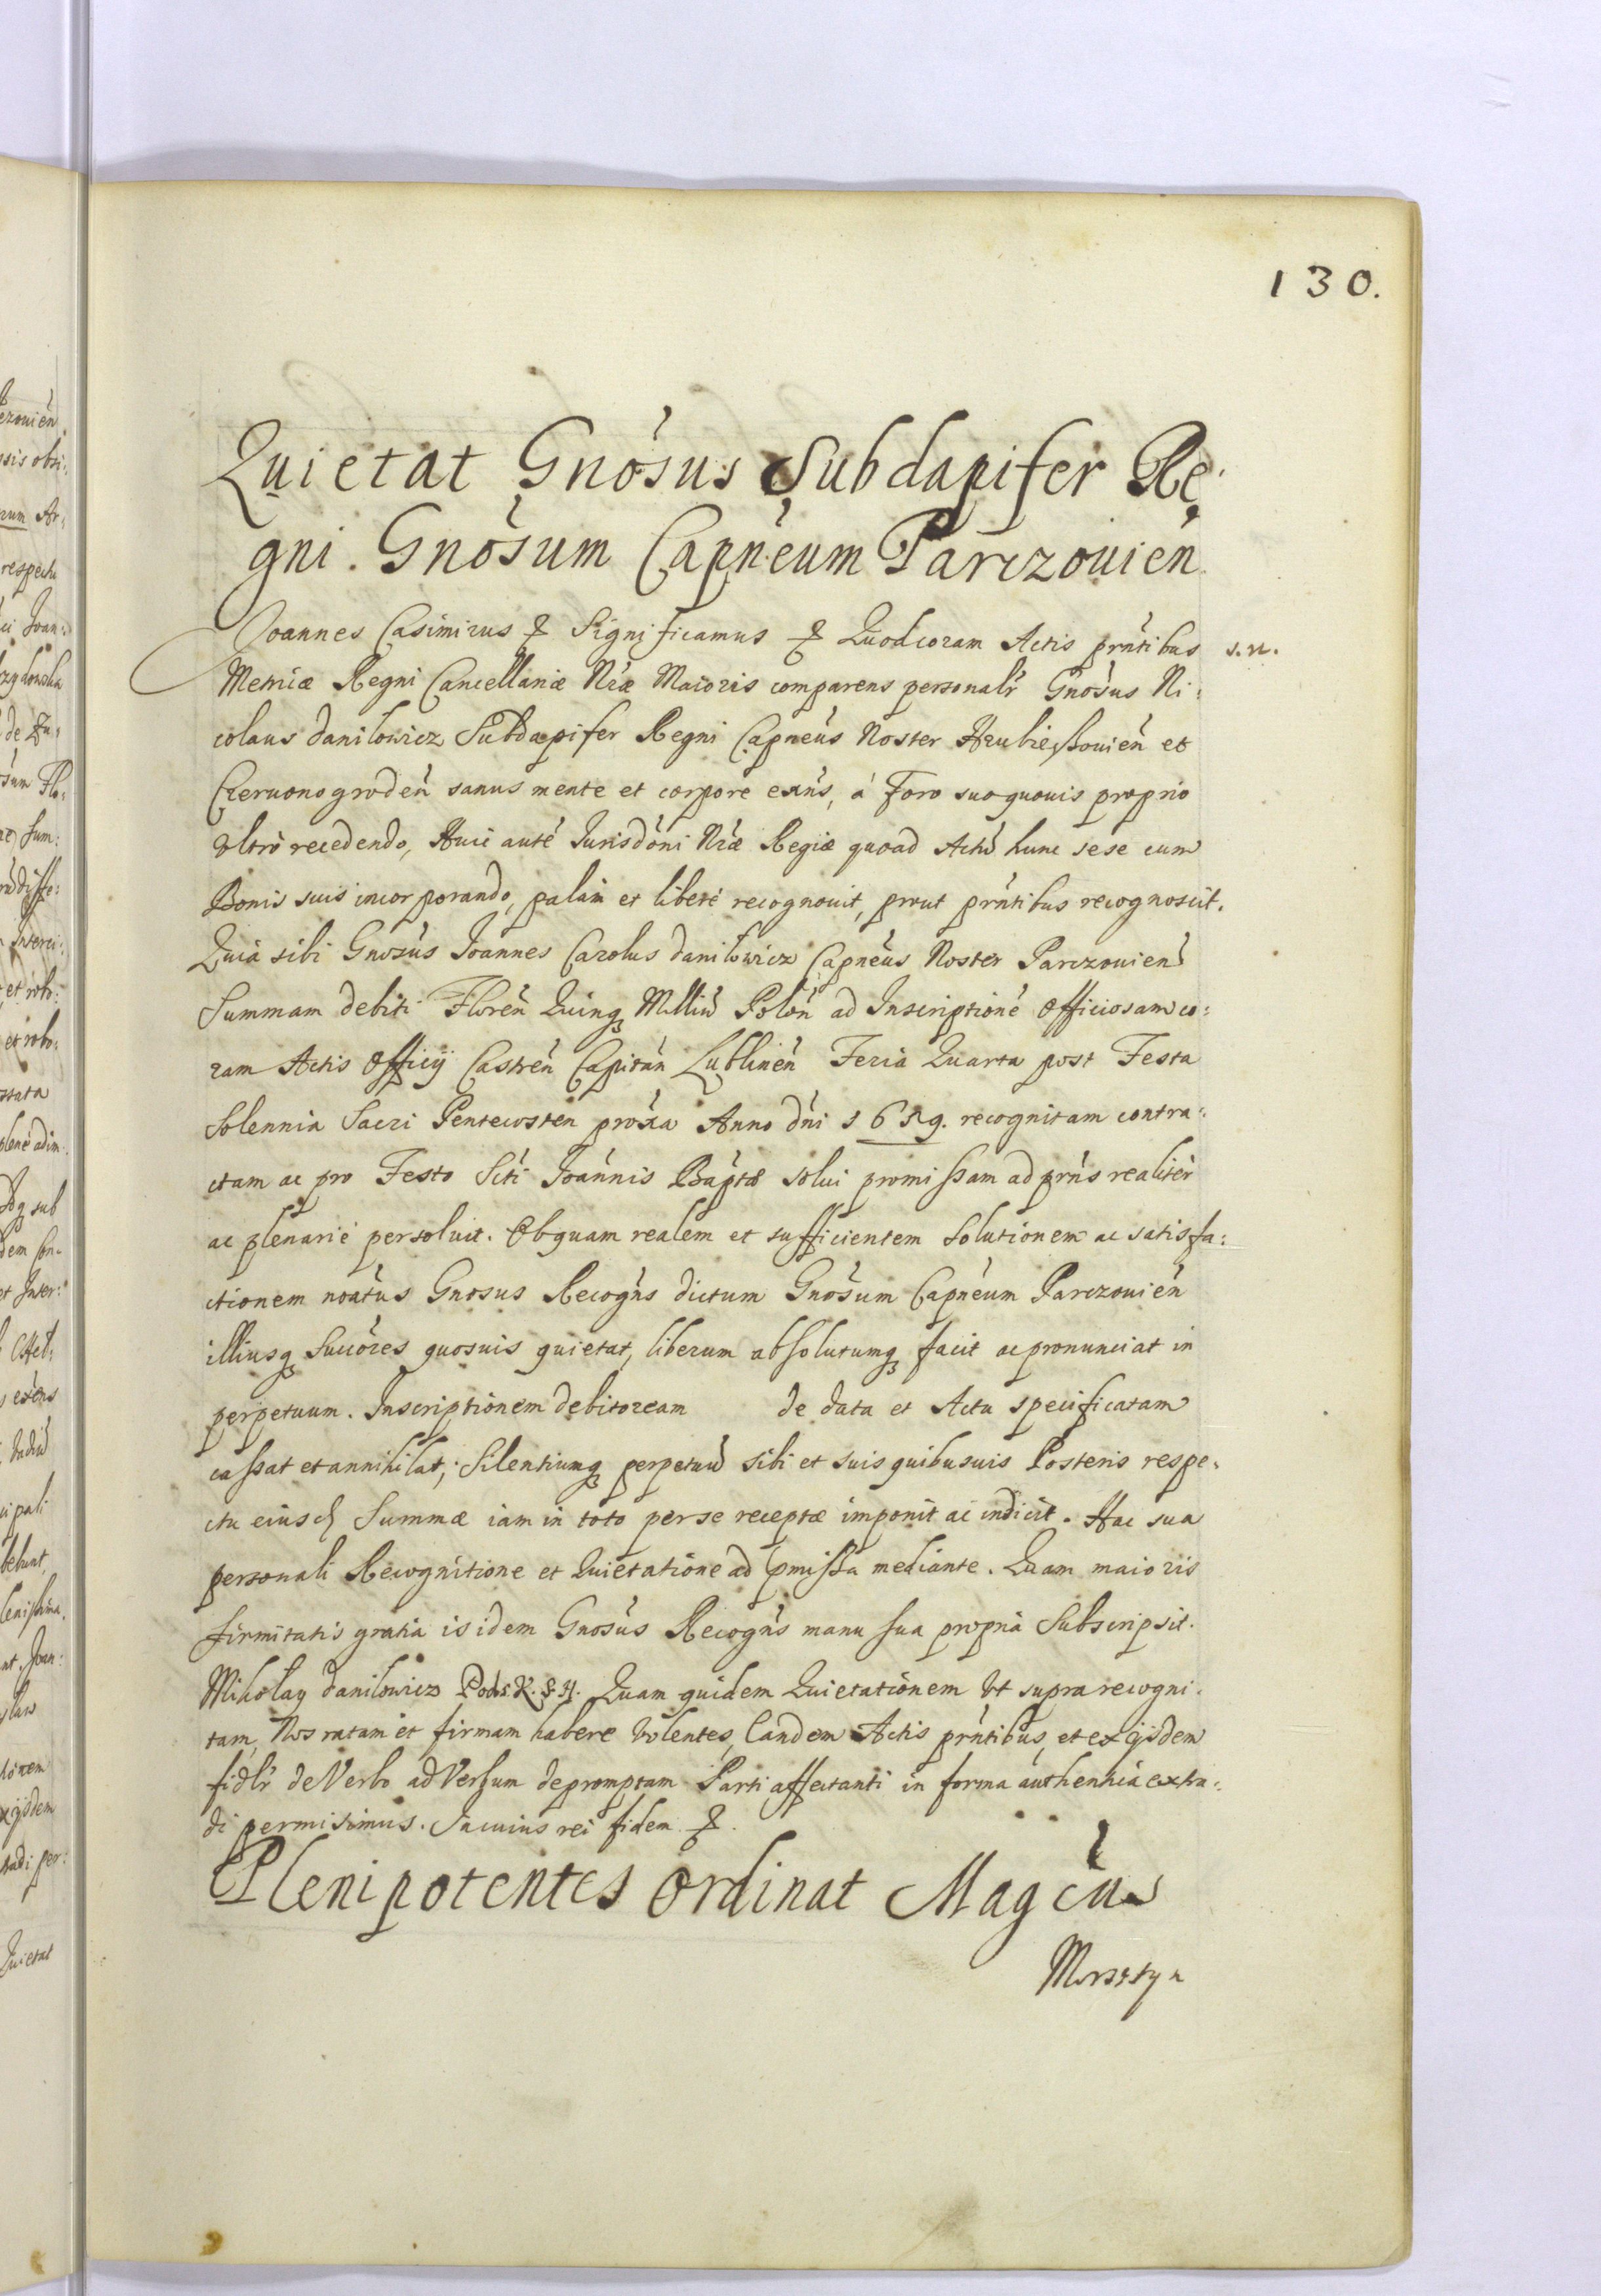 130.
Quietat Gnósus Subdapifer Re:
gni. Gnósum Capnéum Parczouień
Joannes Casimirus & Significamus & Quod coram Actis prńtibus s. n.
Metricæ Regni Cancellariæ Nræ Maioris comparens personalr Gnósus Ni:
colaus Danilowicz Subdapifer Regni Capnéus Noster Hrubieszouień et
Czeruonogrodeń sanus mente et corpore exńs, á Foro suo quouis proprio
vltró recedendo, Huic auté Jurisdóni Nræ Regiæ quoad Actū hunc sese cum
Bonis suis incorporando, palám et liberé recognouit, prout prńtibus recognoscit.
Quia sibi Gnosús Joannes Carolus Danilowicz Capnéus Noster Parczouień
Summam debiti Floreń Quinq Milliū Poloń ad Inscriptioné Officiosam co:
ram Actis Officij Castreń Capitań Lublineń Feria Quarta post Festa
Solennia Sacri Pentecosten próxa Anno dńi 1659. recognitam contra:
ctam ac pro Festo Scti Joannis Baptæ solui promissam ad prńs realitèr
ac plenariè persoluit. Obquam realem et sufficientem Solutionem ac satisfa:
ctionem noátus Gnosus Recogńs dictum Gnósum Capnéum Parczouień
illiusq Succóres quosuis quietat, liberum absolutumq facit ac pronunciat in
perpetuum. Inscriptionem debitoream de data et Actu specificatam
cassat et annihilat; Silentiumq perpetuū sibi et suis quibusuis Posteris respe:
ctu eiusd Summæ iam in toto per se receptæ imponit ac indicit. Hac sua
personali Recognitione et Quietatione ad pmissa mediante. Quam maioris
firmitatis gratia is idem Gnosús Recogńs manu sua propria Subscripsit.
Mikolay Danilowicz Pods. K. S. H. Quam quidem Quietationem Vt supra recogni:
tam, Nos ratam et firmam habere Volentes, Eandem Actis prńtibus, et ex ijsdem
fidlr de Verbo ad Verbum depromptam Parti affectanti in forma authentica extra:
di permisimus. In cuius rei fidem &.
Plenipotentes Ordinat Magcús
Morsztyn